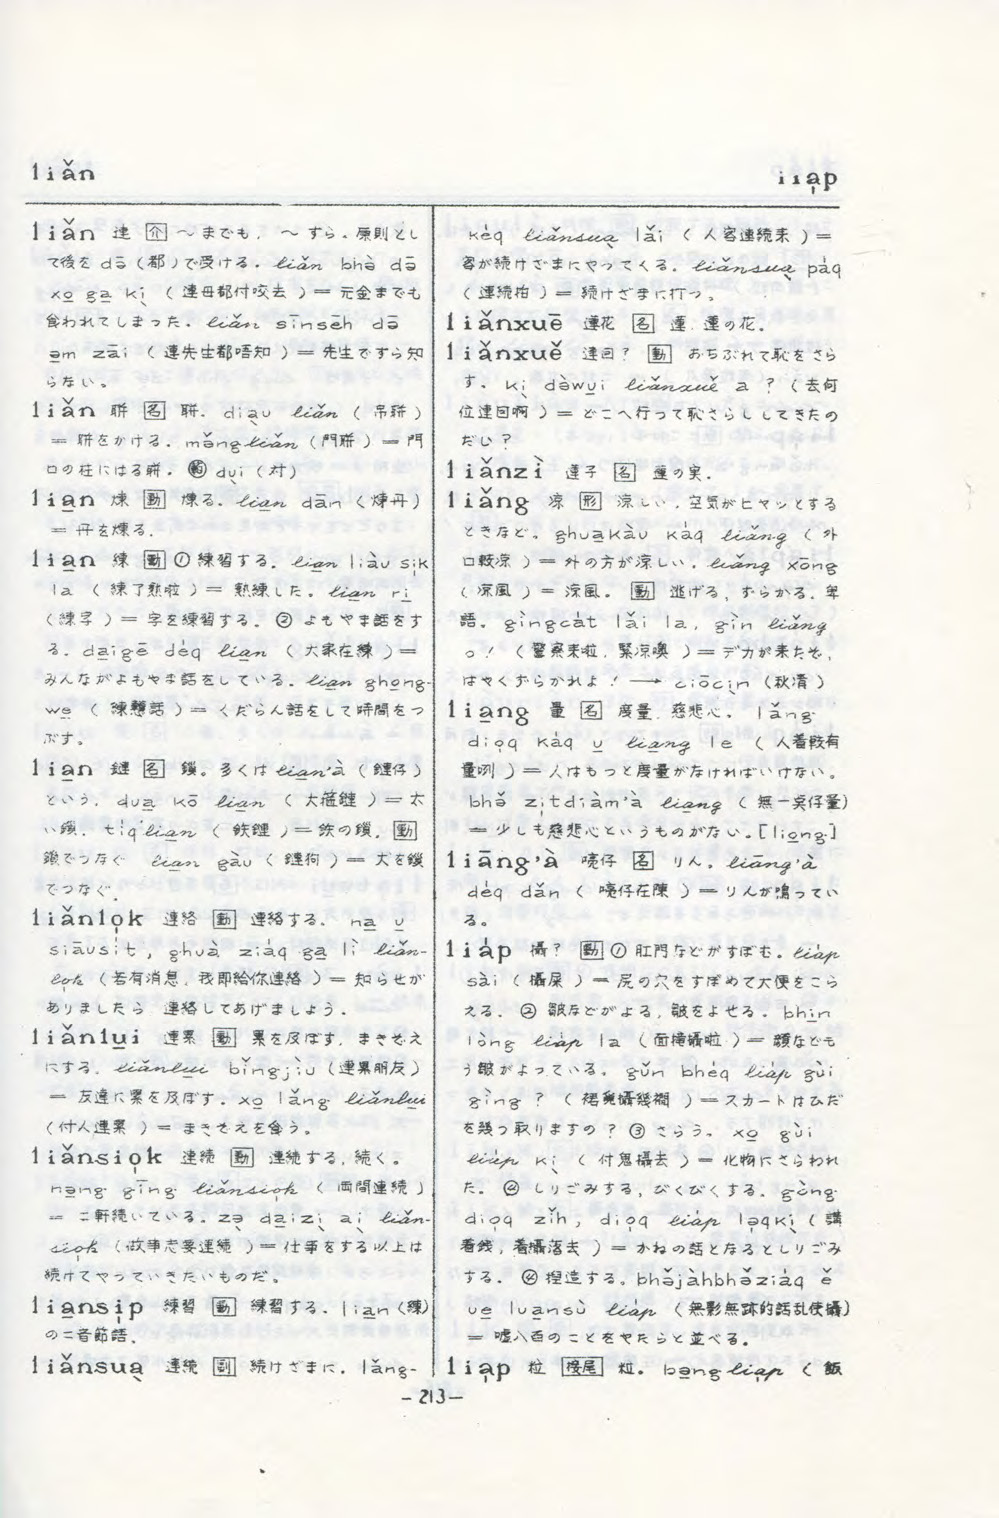 liǎn
liap
liǎn 連 介 〜までも, 〜すら。原則とし
て後を dā (都)で受ける。liǎn bhò dā
xo ga kì (連母都付咬去) = 元金までも
食われてしまった。liǎn sinseh dā
əm zāi (連先生都唔知) = 先生ですら知
らない。
liǎn 聨 名 聨. diàu liǎn (吊聨)
= 聨をかける。mňg-liǎn (門聨) = 門
口の柱にはる聨。 dui (对)
lian 煉 動 煉る。lian dān (煉丹)
= 丹を煉る.
lian 練 動 ① 練習する。lian liàu sik
la (練了熟啦) = 熟練した。lian ri
(練字) = 字を練習する。② よもやま話をす
る。daigē déq lian (大家在練) =
みんながよもやま話をしている。lian ghong-
we (練戇話) = くだらん話をして時間をつ
ぶす。
lian 鏈 名 鎖。多くは lian'à (鏈仔)
という。dua kō lian (大箍鏈) = 太
い鎖. tiq lian (鉄鏈) = 鉄の鎖. 動
鎖でつなぐ lian gàu (鏈狗) = 犬を鎖
でつなぐ.
liǎnlok 連絡 動 連絡する. na u
siāusit, ghuà ziaq ga lì liǎn-
lok (若有消息, 我即給你連絡) = 知らせが
ありましたら 連絡してあげましょう.
liǎnlui 連累 動 累を及ぼす, まきぞえ
にする. liǎnlui bǐngjiù (連累朋友)
= 友達に累を及ぼす. xo lǎng liǎnlui
(付人連累) = まきぞえを食う。
liǎnsiok 連続 動 連続する, 続く。
nəng gīng liǎnsiok (両間連続)
= 二軒続いている. zə daizi ai liǎn-
siok (做事志要連続) = 仕事をする以上は
続けてやっていきたいものだ。
liansip 練習 動 練習する. lian (練)
の二音節語.
liǎnsuà 連続 副 続けざまに. lǎng-
kéq liǎnsuà lǎi (人客連続来) =
客が続けざまにやってくる. liǎnsuà páq
(連続拍) = 続けざまに打つ。
liǎnxuē 蓮花 名 蓮. 蓮の花.
liǎnxuě 連回? 動 おちぶれて恥をさら
す. kì dàwui liǎnxuě a? (去何
位連回啊) = どこへ行って恥さらししてきたの
だい?
liǎnzì 蓮子 名 蓮の実.
liǎng 涼 形 涼しい, 空気がヒヤッとする
ときなど. ghuakàu kàq liǎng (外
口較涼) = 外の方が涼しい. liǎng xōng
(涼風) = 涼風. 動 逃げる, ずらかる, 卑
語. gìngcàt lǎi la, gìn liǎng
o! (警察来啦, 緊涼噢) = デカが来たぞ,
はやくずらかれよ! → ciōcìn (秋凊)
liang 量 名 度量, 慈悲心. lǎng
dioq kàq u liang le (人着較有
量咧) = 人はもっと度量がなければいけない.
bhǒ zitdiàm'à liang (無一点仔量)
= 少しも慈悲心というものがない。[liong]
liāng'à 喨仔 名 りん. liāng'à
déq dǎn (喨仔在陳) = りんが鳴ってい
る。
liáp 攝? 動 ① 肛門などがすぼむ. liáp
sài (攝屎) = 尻の穴をすぼめて大便をこら
える. ② 皺などがよる, 皺をよせる. bhin
lòng liáp la (面攏攝啦) = 顔なども
う皺がよっている. gǔn bheq liáp gùi
gìng? (裙覓攝幾襉) = スカートはひだ
を幾つ取りますの? ③ さらう. xo gùi
liáp kì (付鬼攝去) = 化物にさらわれ
た. ④ しりごみする, びくびくする. gòng-
dioq zǐh, dioq liáp ləqkì (講
着銭, 着攝落去) = かねの話となるとしりごみ
する. ④ 捏造する. bhǒjàhbhǒziáq ě
ue luansù liáp (無影無跡的話乱使攝)
= 嘘八百のことをやたらと並べる.
liap 粒 接尾 粒. bəng-liap (飯
－213－